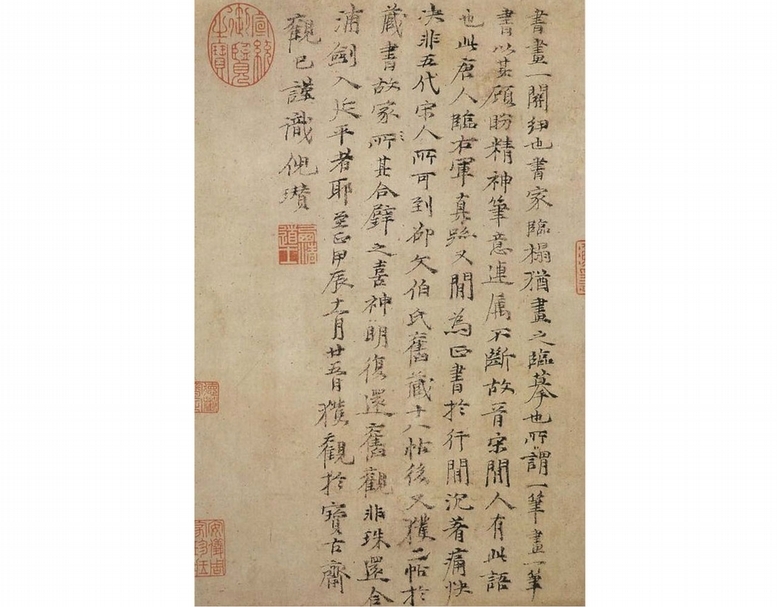 書畫一關紐也書家臨榻猶畫之臨摹也所謂一筆畫一筆
書以其顧盼精神筆意連属不斷故晉宋間人有此語
也此唐人臨右軍真跡又間為正書於行間沉著痛快
决非五代宋人所可到卲文伯氏舊藏十八帖後又獲二帖於
藏書故家所其合璧之喜神明復還舊觀非珠還合
浦劍入延平者耶至正甲辰十一月廿五日獲觀於寶古齋
觀已謹識倪瓚
宣統御覽之寶